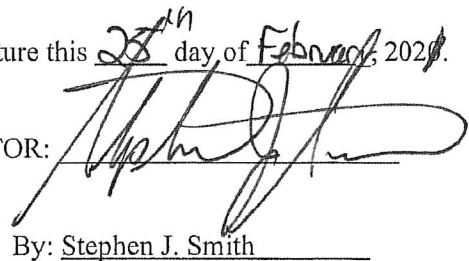 ture this 25th day of February, 202
TOR:
By: Stephen J. Smith